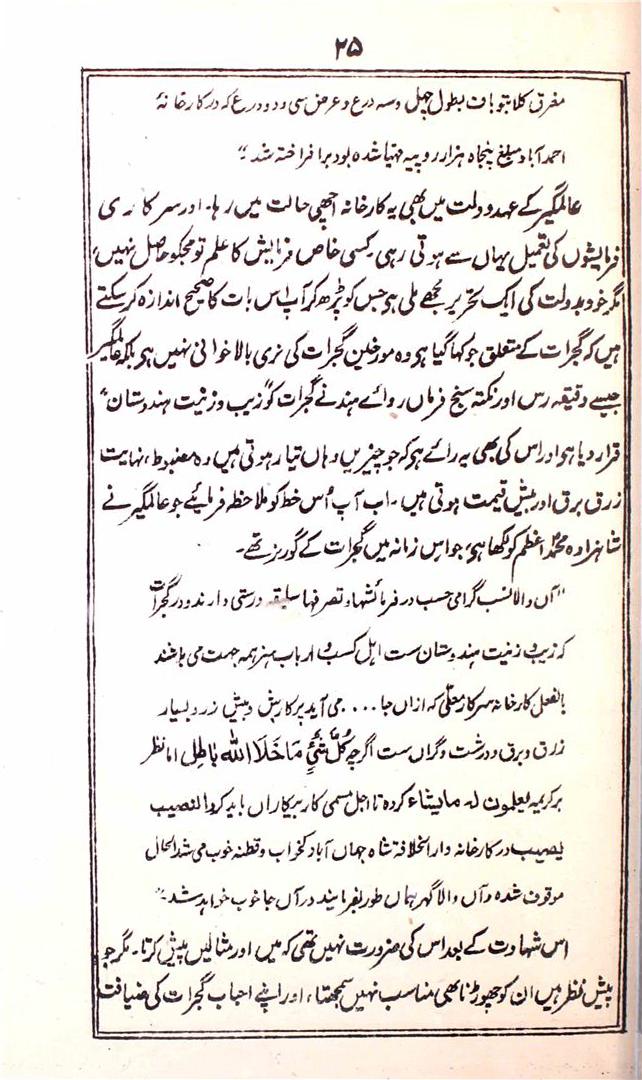 ۲۵
مغرق کلابتوبان بطول چہل وسہ درع وعرض سی ودو درع کہ در کارخانۂ
احمد آباد مبلغ پنجاہ ہزار روپیہ مہیا شدہ بود برافراختہ شد"
عالمگیر کے عہد دولت میں بھی یہ کارخانہ اچھی حالت میں رہا۔ اور سرکاری
فرمایشوں کی تعمیل یہاں سے ہوتی رہی کسی خاص فرمایش کا علم تو مجکو حاصل نہیں،
مگر خود بدولت کی ایک تحریر مجھے ملی ہو جس کو پڑھ کر آپ اس بات کا صحیح اندازہ کرسکتے
ہیں کہ گجرات کے متعلق جو کہا گیا ہو وہ مورخین گجرات کی نری بالاخوانی نہیں ہو بلکہ عالمگیر
جیسے دقیقہ رس اور نکتہ سنج فرماں روائے ہند نے گجرات کو "زیب وزینت ہندوستان"
قرار دیا ہو اور اس کی بھی یہ رائے ہو کہ جو چیزیں وہاں تیار ہوتی ہیں وہ مضبوط، نہایت
زرق برق اور بیش قیمت ہوتی ہیں۔ اب آپ اُس خط کو ملاحظہ فرمائیے جو عالمگیر نے
شاہزادہ محمد اعظم کو لکھا ہو، جو اس زمانہ میں گجرات کے گورنر تھے۔
"آں والا نسب گرامی حسب در فرمائشہا و تصرفہا سلیقہ درستی دارند و در گجرات
کہ زیب و زینت ہندوستان ست اہل کسب و ارباب ہنر ہمہ جہت می باشند
بالفعل کارخانہ سرکار معلّٰی کہ ازاں جا .... می آید پرکارش وبیش زر و بسیار
زرق وبرق ودرشت وگراں ست اگرچہ كُلُّ شَيْءٍ مَا خَلَا الله بَاطِل اما نظر
بر کریمہ یعلمون لہ مایشاء کردہ تا اجل مسمی کار بیکاراں باید کرد النصیب
یصیب در کارخانہ دار الخلافۃ شاہ جہاں آباد کمخواب و قطنہ خوب می شد الحال
موقوف شدہ وآں والا گہر ہماں طور بفرمایند در آں جا خوب خواہد شد۔"
اس شہادت کے بعد اس کی ضرورت نہیں تھی کہ میں اور مثالیں پیش کرتا۔ مگر جو
پیش نظر ہیں ان کو چھوڑنا بھی مناسب نہیں سمجھتا، اور اپنے احباب گجرات کی ضیافت